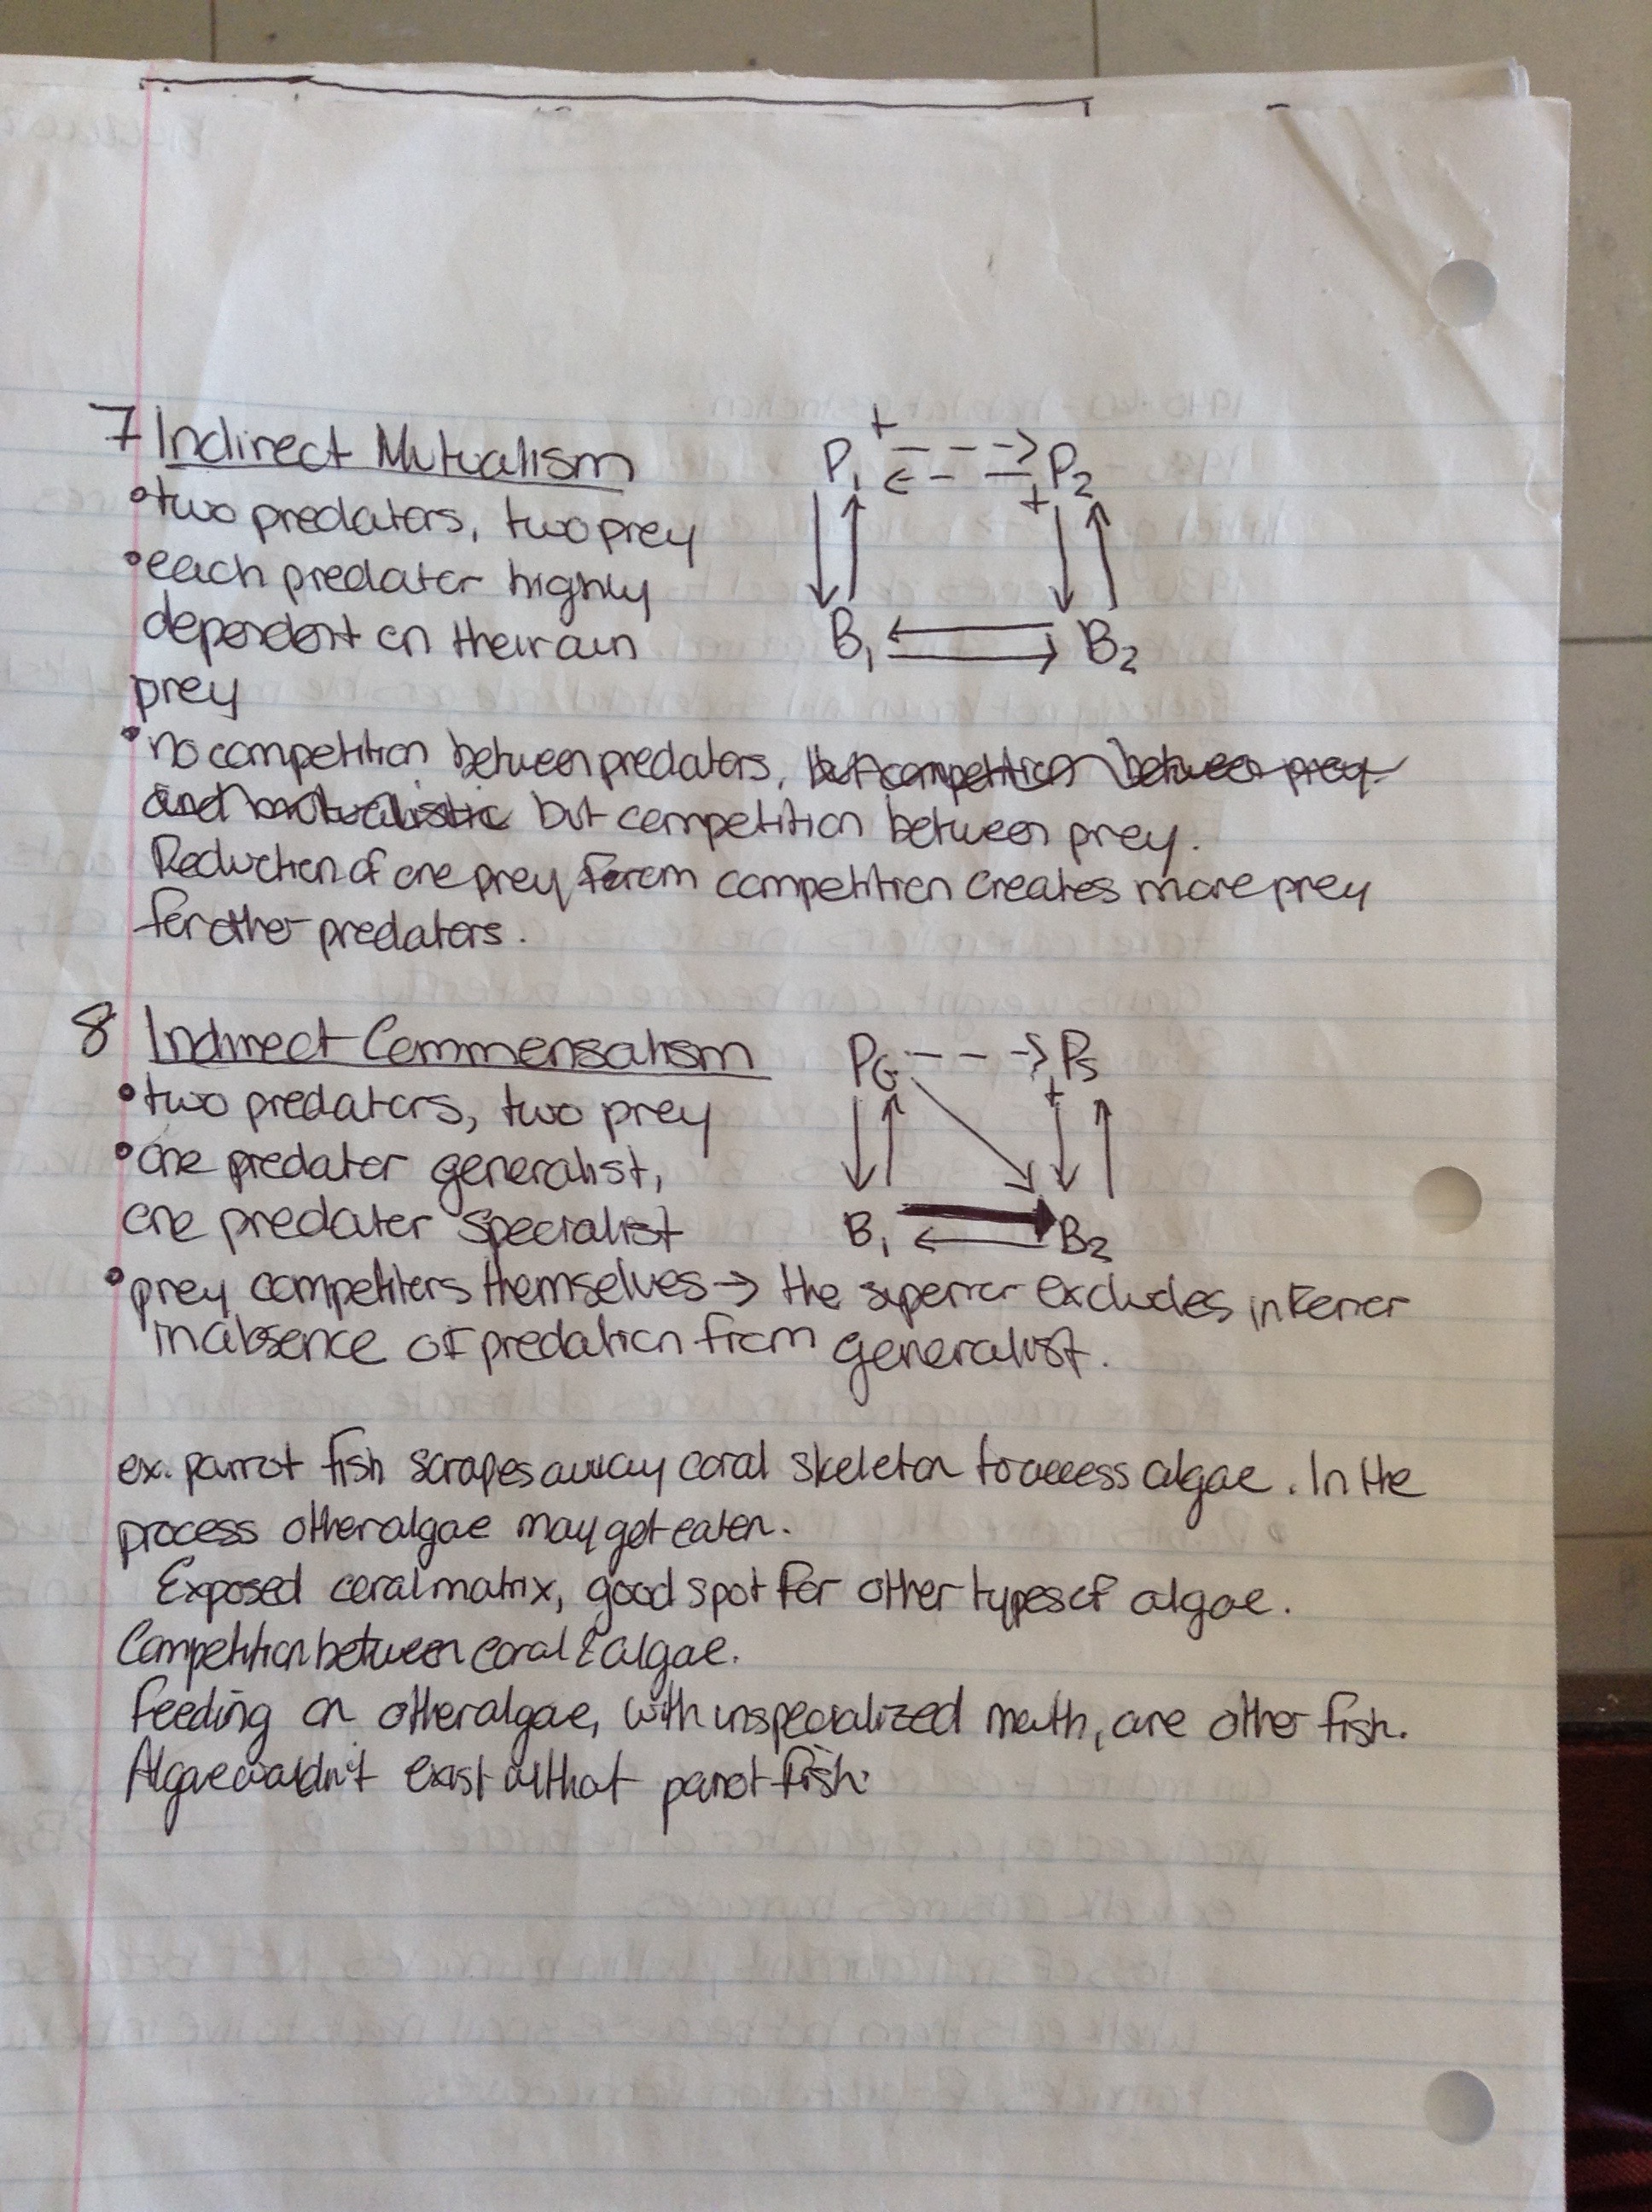 7 Indirect Mutualism
P1 + P2 +
• two predators, two prey
• each predator highly
dependent on their own
B1 B2
prey
• no competition between predators, but competition between prey
and mutualistic but competition between prey.
Reduction of one prey from competition creates more prey
for other predators.
8 Indirect Commensalism
PG PS +
• two predators, two prey
• one predator generalist,
one predator specialist
B1 B2
• prey competitors themselves → the superior excludes inferior
in absence of predation from generalist.
ex. parrot fish scrapes away coral skeleton to access algae. In the
process other algae may get eaten.
Exposed coral matrix, good spot for other types of algae.
Competition between coral & algae.
Feeding on other algae, with unspecialized mouth, are other fish.
Algae wouldn't exist without parrot fish.